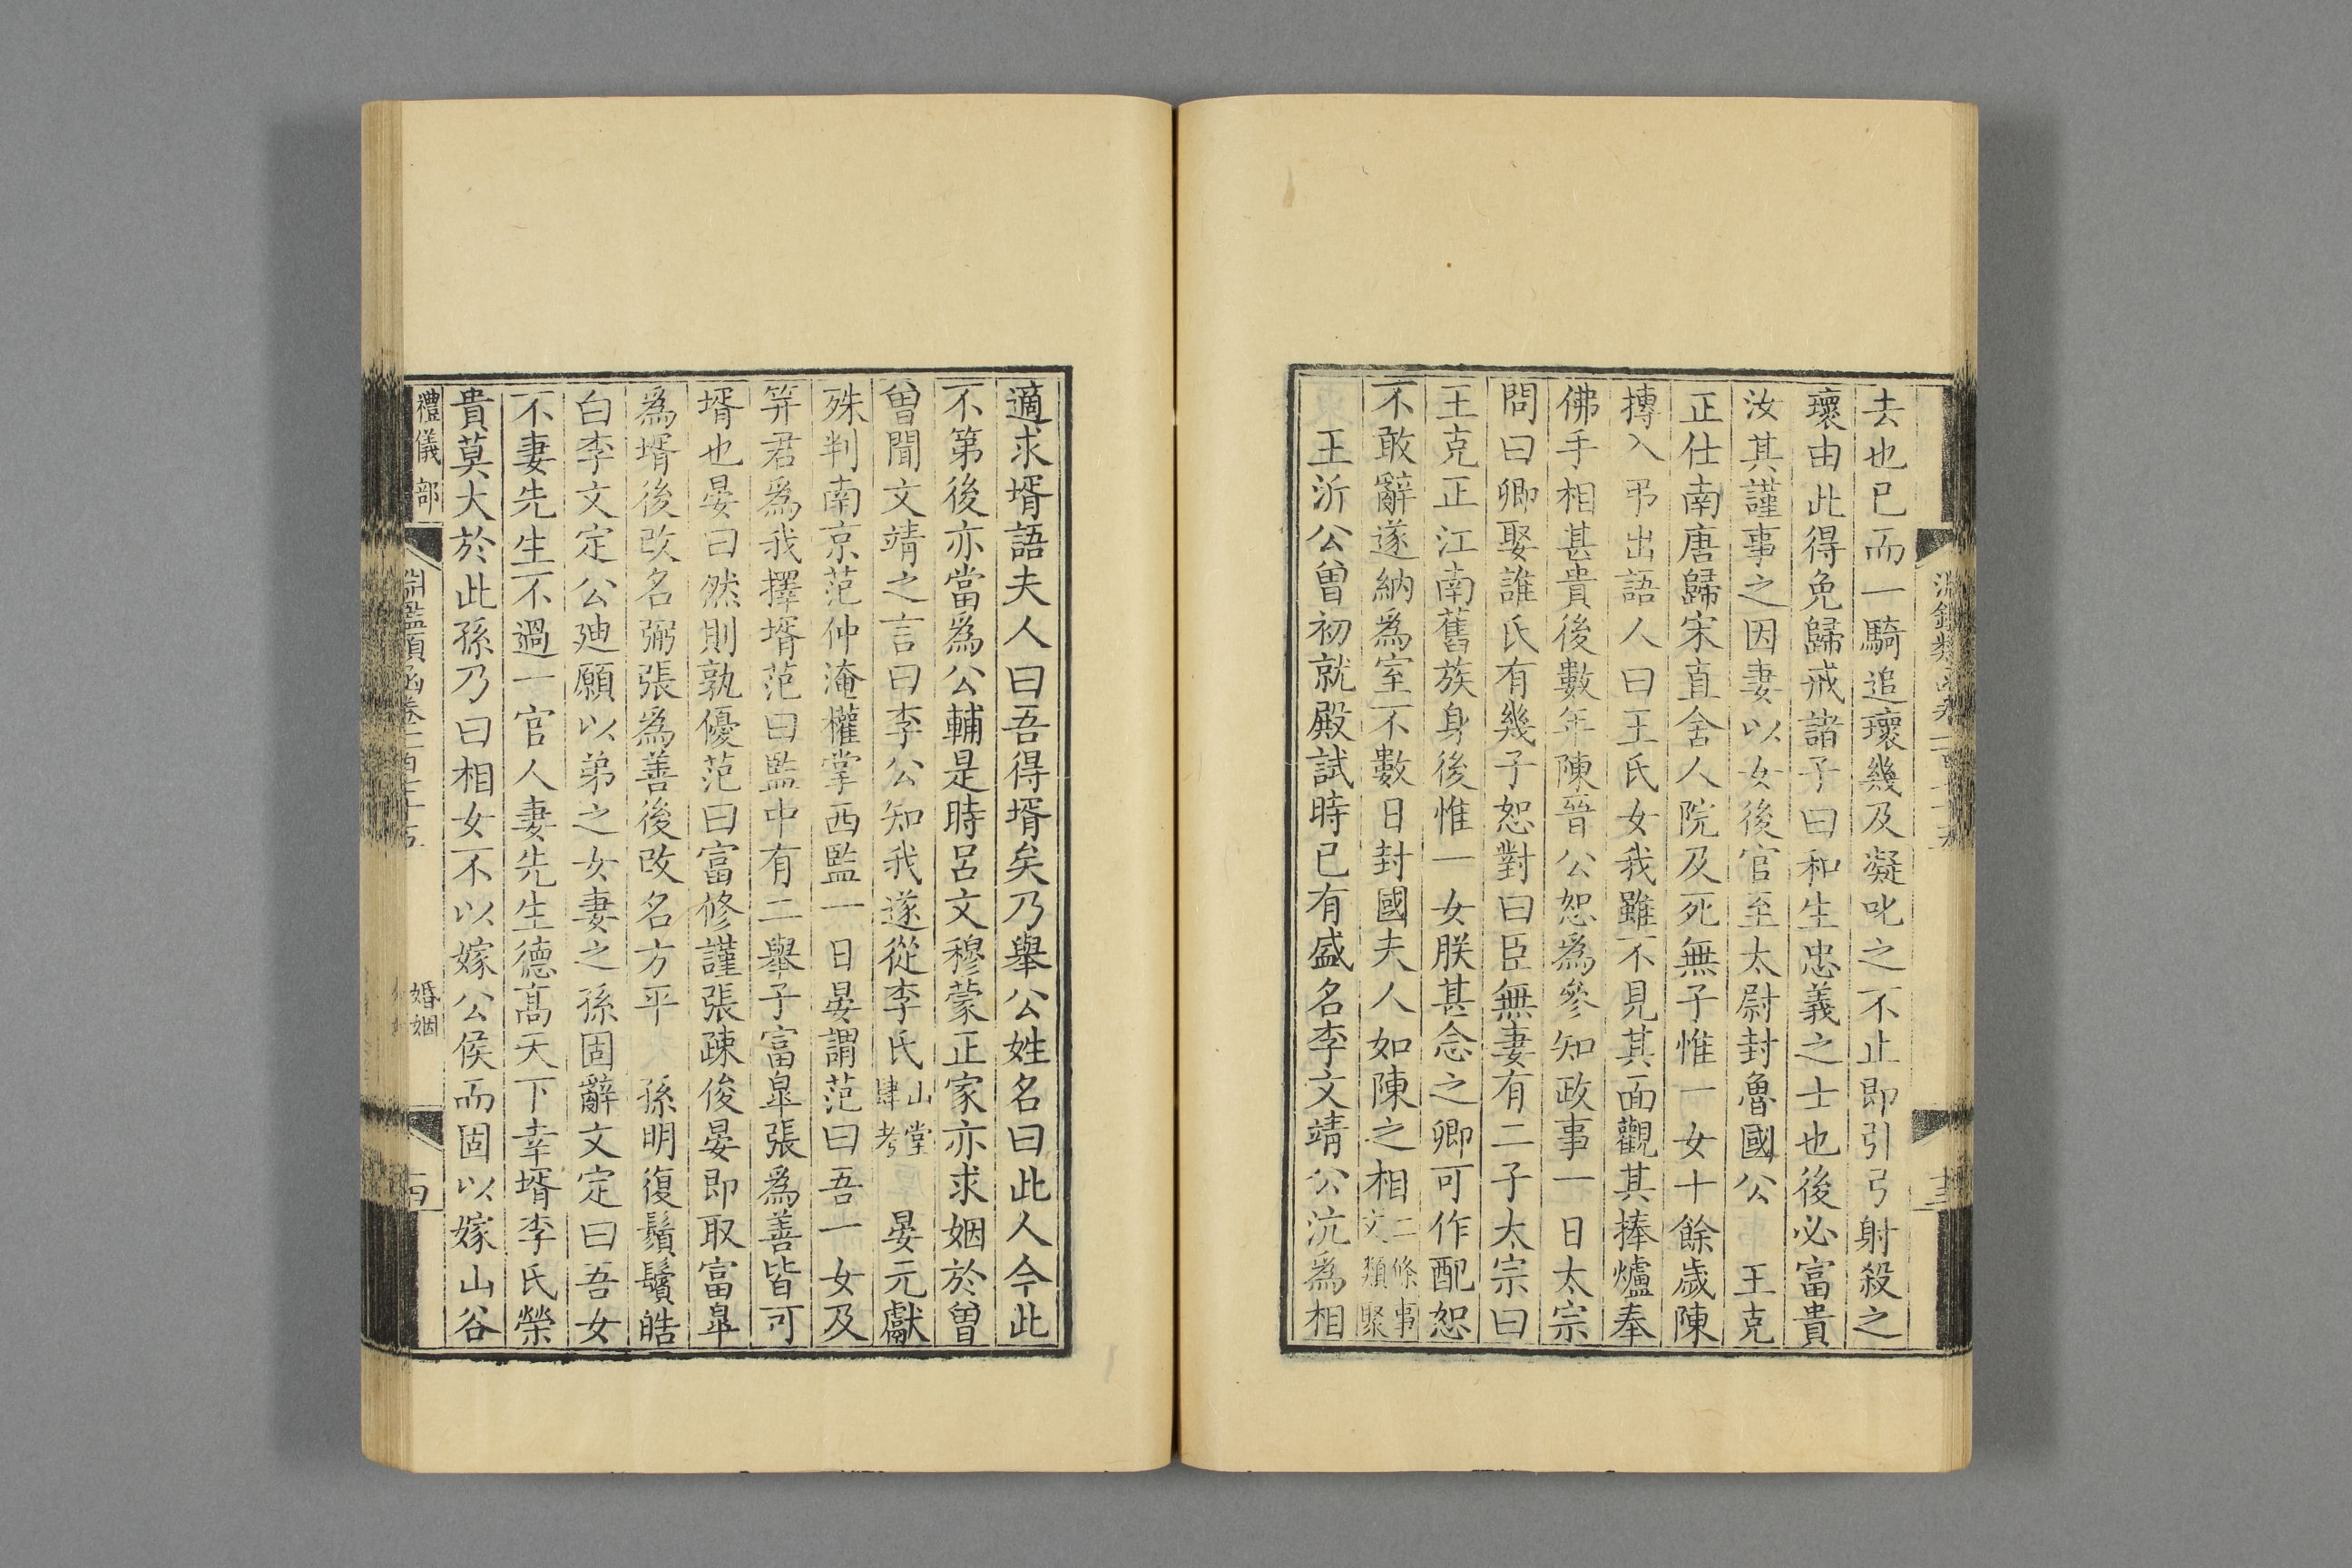 去也已而一騎追瓌幾及凝叱之不止即引弓射殺之
瓌由此得免歸戒諸子曰和生忠義之士也後必富貴
汝其謹事之因妻以女後官至太尉封魯國公　王克
正仕南唐歸宋直舍人院及死無子惟一女十餘歲陳
摶入弔出語人曰王氏女我雖不見其面觀其捧爐奉
佛手相甚貴後數年陳晉公恕為參知政事一日太宗
問曰卿娶誰氏有幾子恕對曰臣無妻有二子太宗曰
王克正江南舊族身後惟一女朕甚念之卿可作配恕
不敢辭遂納為室不數日封國夫人如陳之相二條事文類聚
王沂公曾初就殿試時已有盛名李文靖公沆為相
適求壻語夫人曰吾得壻矣乃舉公姓名曰此人今此
不第後亦當為公輔是時呂文穆蒙正家亦求姻於曾
曾聞文靖之言曰李公知我遂從李氏山堂肆考　晏元獻
殊判南京范仲淹權掌西監一日晏謂范曰吾一女及
笄君為我擇壻范曰監中有二舉子富皐張為善皆可
壻也晏曰然則孰優范曰富修謹張疎俊晏即取富皐
為壻後改名弼張為善後改名方平　孫明復鬚鬢皓
白李文定公廸願以弟之女妻之孫固辭文定曰吾女
不妻先生不過一官人妻先生德高天下幸壻李氏榮
貴莫大於此孫乃曰相女不以嫁公侯而固以嫁山谷
禮儀部
婚姻